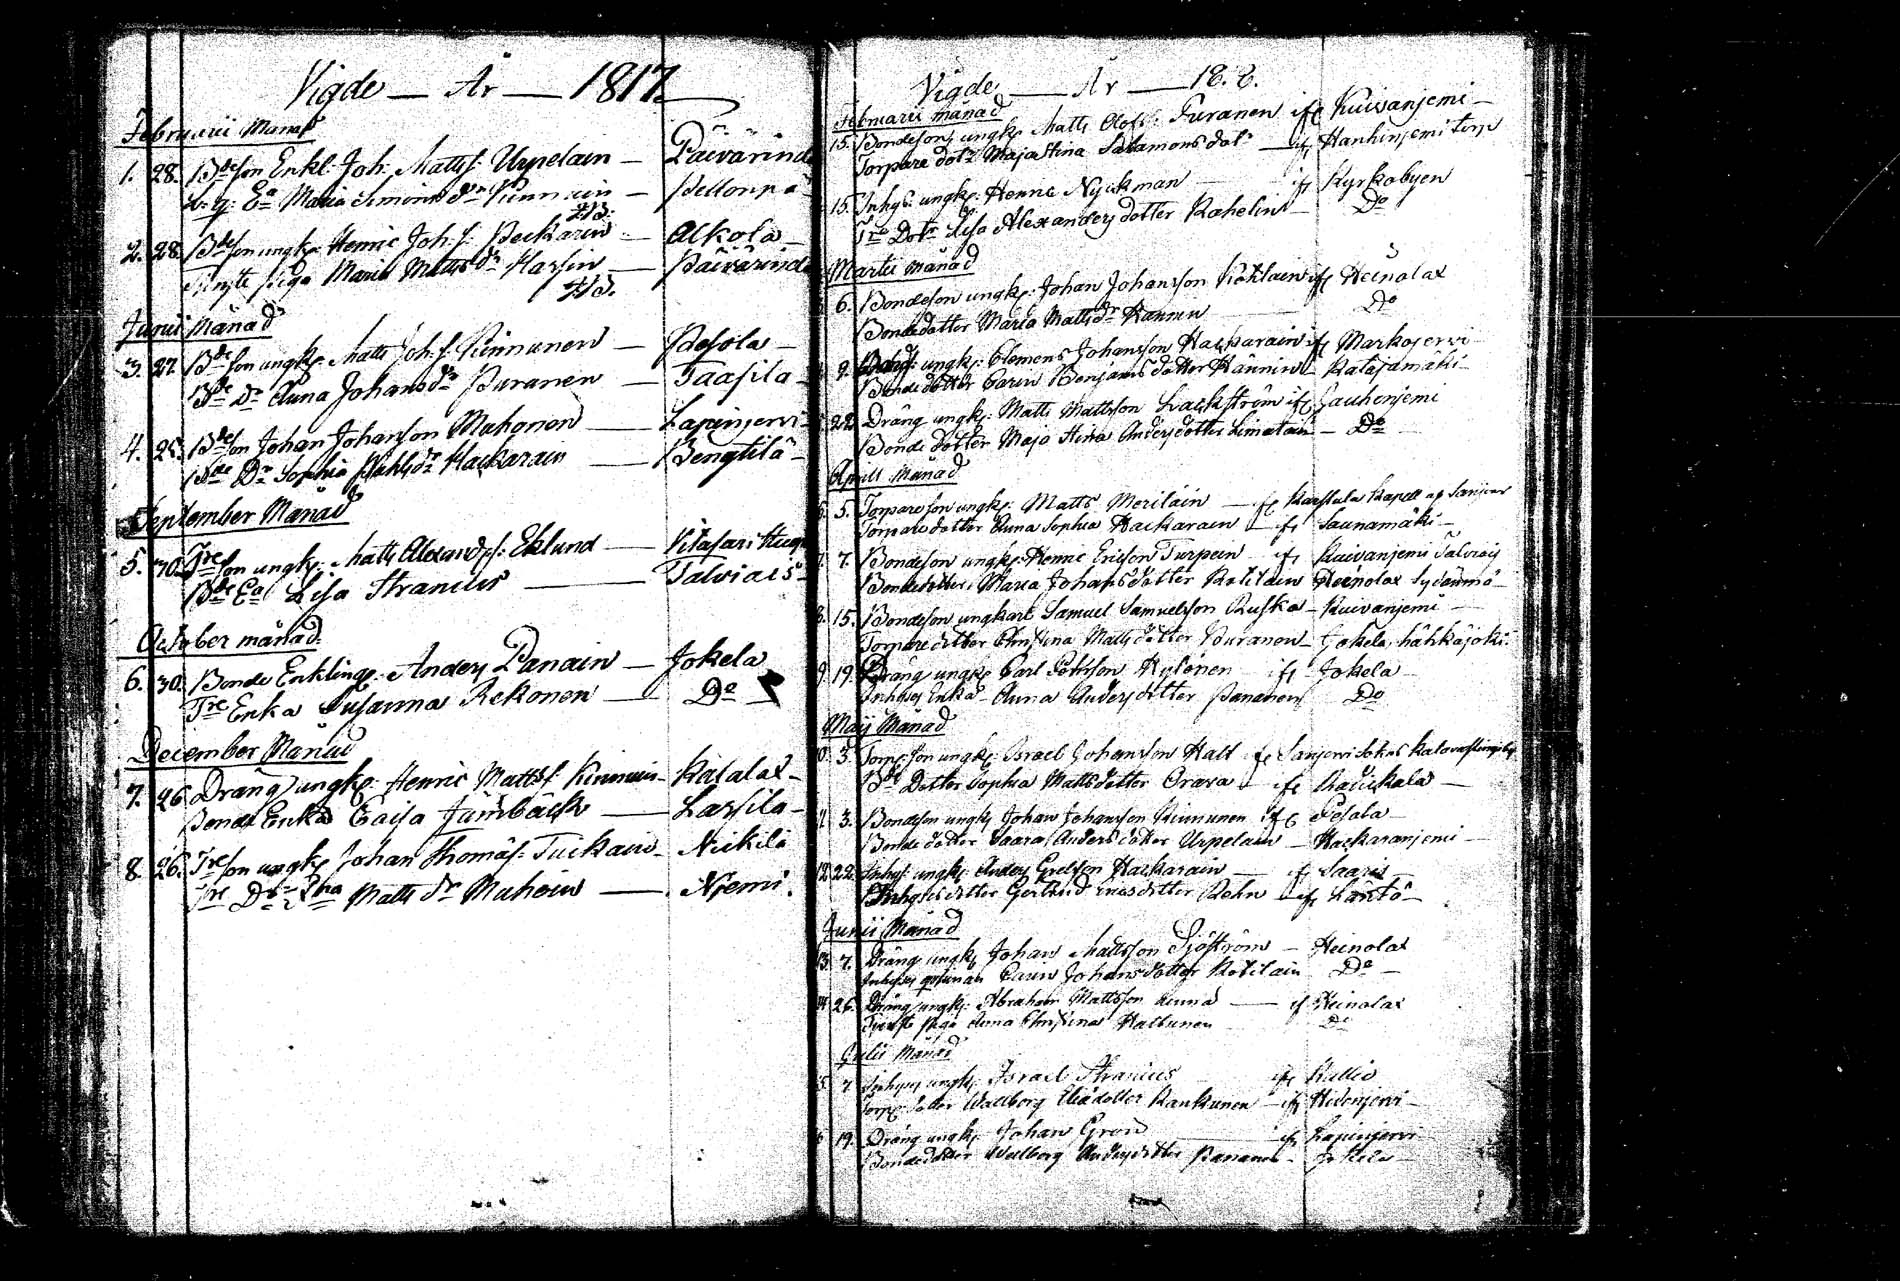 Vigde — År — 1817.
Februarii Månad
1. 28. Bde son Enkl. Joh. Matts. Urpelain — Päivärinda
Enka Maria Simons dr Kinnuin — Pellonpä
2. 28. Bde son ungk. Henric Joh. s. Packarin — Alkola
piga Maria Matts dr Harsin — Päivärinda
Junii Månad
3. 27. Bde son ungk. Matts Joh. s. Kinnunen — Pesola —
Bde Dr Anna Johans dr Puranen — Taasila —
4. 25. Bde son Johan Johanson Mahonen — Lapinjervi —
Bde Dr Sophia Påhls dr Hackarain — Bengtilä —
September Månad
5. 30. Tre son ungk. Matts Alexand. s. Eklund —
Bde Ea Lisa Stranius — Talviais
October månad.
6. 30. Bonde Enkling. Anders Panain — Jokela
Tre Enka Susanna Rekonen — Do —
December Månad
7. 26. Dräng ungk. Henric Matts s. Kinnuin — Kalalax —
Bonde Enka Caisa Jernbäck — Larsila —
8. 26. Tre son ungk. Johan Thomas s. Tuckain — Nickilä
Tre Dr Matts dr Muhoin — Niemi.
Vigde — År — 18.8.
Februarii månad
15. Bondeson, ungk. Matts Olofs s. Turanen if. Kuivanjemi —
Torpare dotr Maja Stina Salamons dotr — if. Hanhinjemi torp
15. Inhys. ungk. Henric Nyckman — if. Kyrkobyen
Tre Dotr Lisa Alexanders dotter Rahelin — Do
Martii Månad
6. Bondeson ungk. Johan Johansson Kåhlain if. Heinolax
Bondedotter Maria Matts dr Hännin — Do
9. ungk. Clemens Johansson Hackarain if. Markojervi
Bonde dotter Carin Benjams dotter Hännin — Katajamäki —
22. Dräng ungk. Matts Mattsson Lackström if. Lauhenjemi
Bonde dotter Maja Stina Anders dotter Limatain — Do
Aprill Månad
5. Torpare son ungk. Matts Meriläin — if. Karstula Kapell af Sarijerv
Torpare dotter Anna Sophia Hackarain — if. Saunamäki —
7. 7. Bondeson ungk. Henric Ericson Turpein — if. Kuivanjemi Talviais
Bondedotter Maria Johans dotter Kotilain Heinolax Sydänmä —
8. 15. Bondeson ungkarl Samuel Samuelsson Ruska — Kuivanjemi —
Torpare dotter Christina Matts dotter Puranen — Jokela, hähkäjoki —
9. 19. Dräng ungk. Carl Pehrsson Kylönen if. Jokela —
Inhyses Enka Anna Anders dotter Pananen Do
Maji Månad
10. 3. Torp. son ungk. Israel Johansson Hall if. Sarijervi Sokn
Bde Dotter Sophia Matts dotter Orava — if. —
11. 3. Bondeson ungk. Johan Johansson Kinnunen if. Pesola
Bonde dotter Saara Anders dotter Urpelain — Hackaranjemi —
12. 22. Inhys. ungk. Anders Grelsson Hackarain — if. Saaris —
Inhyses dotter Gertrud Erics dotter Rehn — if. Läntö —
Junii Månad
13. 7. Dräng ungk. Johan Mattsson Sjöström — Heinolax
Inhyses qvinnan Carin Johans dotter Kotilain Do —
14. 26. Dräng ungk. Abraham Mattsson — if. Heinolax
Tjenste piga Anna Christina Halttunen Do
Julii Månad
7. Inhyses ungk. Israel Stranius if. Kallio
Torp. dotter Wallborg Eliædotter Kankunen — if. Hidenjervi —
19. Dräng ungk. Johan Grön — if. Lapinjervi
Bondedotter Wallborg Anders dotter Pananen — Jokela —